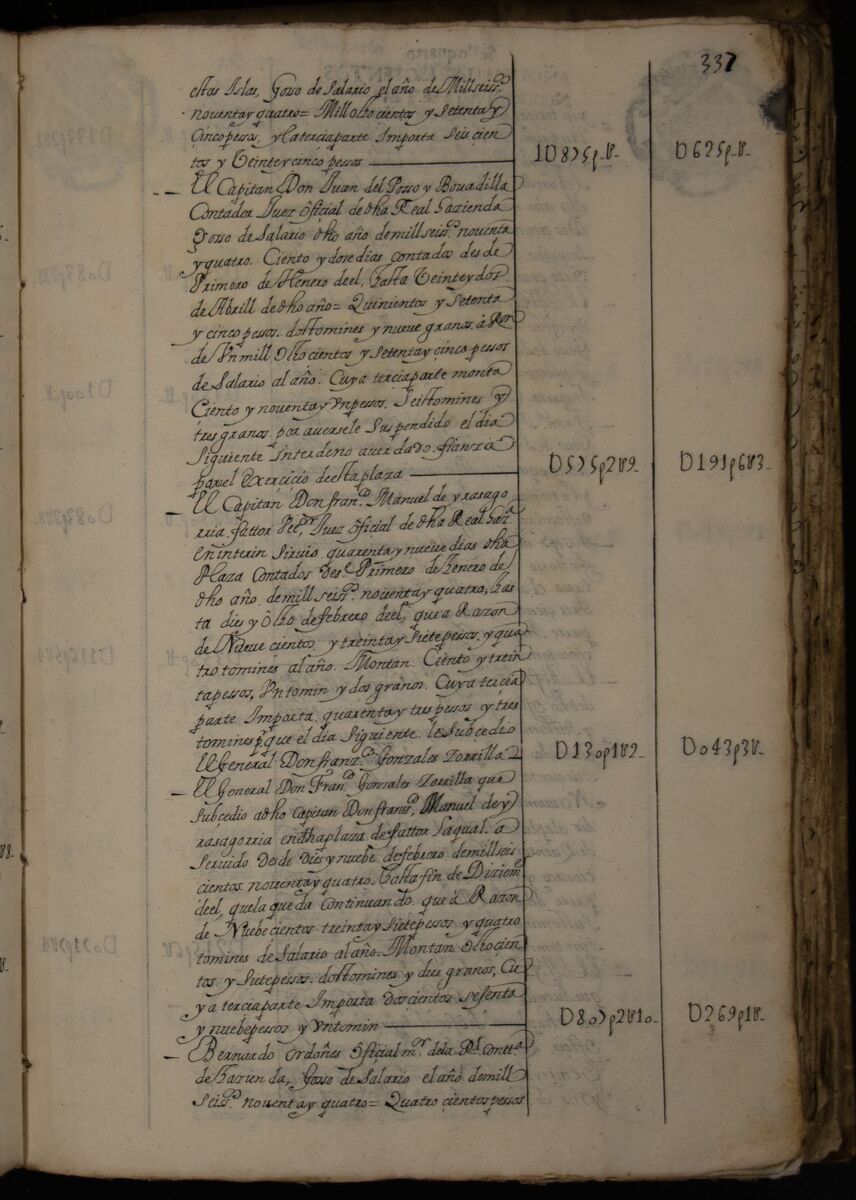 337
estas Islas, Gosso de Salario el año de Mill seisº
noventa y quatro = Mill ochocientos y Setenta y
Cinco pessos, y la tercia parte Importa Seis cien
tos y Veinte y cinco pessos
1D875p.tt.
D625p.tt.
El Capitan Don Juan del Posso y Bouadilla
Contador Juez Oficial de dha Real hazienda
Gosso de Salario dho año de mill seisº noventa
y quatro. Ciento y dose dias contados desde
Primero de Henero deel, hasta Veinte y dos
de Abrill de dho año = Quinientos y Setenta
y cinco pessos. dos tomines y nueve granos. á Ron
de Vn mill Ochocientos y Setenta y cinco pessos
de Salario al año. Cuya tercia parte monta
Ciento y noventa y Vn pessos, Seis tomines y
tres granos. por auersele Suspendido el dia
Siguiente Interin no auer dado fianza
para el exercicio de esta plaza
D575p2tt9.
D191p6tt3.
El Capitan Don franº Manuel de yrasago
rria. fattor Juez Oficial de dha Real Haz.ª
en interin Siruio quarenta y nueve dias dha
Plaza Contados des.e Primero de henero de
dho año de mill seisº noventa y quatro, has
ta dies y Ocho de febrero deel, que a Razon
de Nueve cientos, y treinta y Siete pessos. y qua
tro tomines al año. Montan Ciento y trein
ta pessos, Vn tomin y dos granos. Cuya tercia
parte Importa quarenta y tres pessos y tres
tomines pque el dia Siguiente le Subcedio
El General Don franº Gonzales Zorrilla
D130p1tt2
Do43p3tt.
El General Don Franº Gonzales Zorrilla que
Subcedio a dho Capitan Don franº, Manuel de y
rasagorria en dha plaza de fattor La qual a
Seruido desde Dies y nuebe de febrero de mill seis
cientos noventa y quatro. hasta fin de Diciem.e
deel, que la queda Continuando. que á Razon
de Nuebecientos treinta y Siete pessos y quatro
tomines de Salario al año. Montan Ochocien
tos y Siete pessos. dos tomines y dies granos, Cu
ya tercia parte Importa Doscientos sesenta
y nuebe pessos y Vn tomin
D807p2tt10.
D269p1tt.
Bernardo Ordoñes Oficial m.r de la R.l Cont.a
de hazienda, Gosso de Salario el año de mill
Seisº noventa y quatro = Quatro cientos pessos